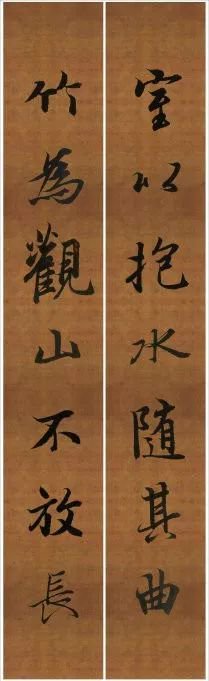 室以抱水随其曲
竹為觀山不放長